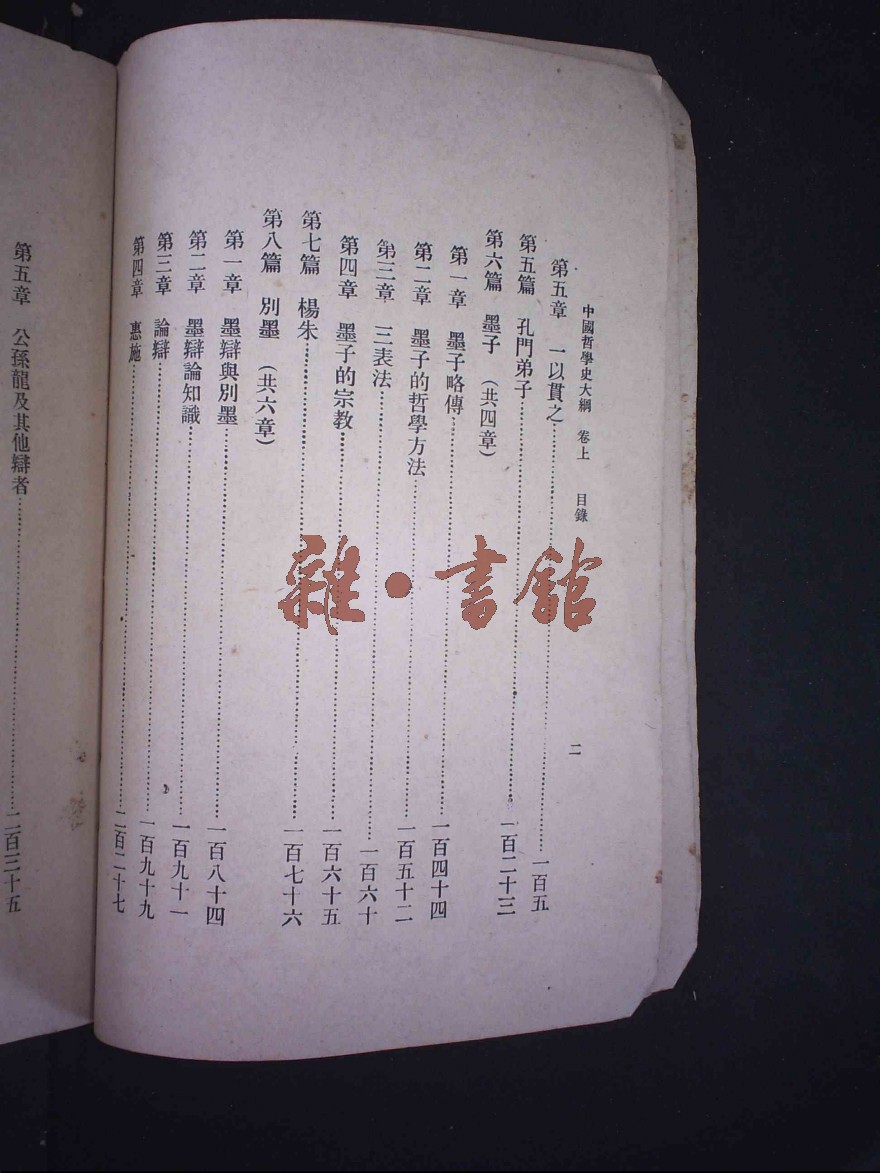 中國哲學史大綱　卷上　　目錄　　二
第五章　一以貫之……一百五
第五篇　孔門弟子……一百二十三
第六篇　墨子　（共四章）
第一章　墨子略傳……一百四十四
第二章　墨子的哲學方法……一百五十二
第三章　三表法……一百六十
第四章　墨子的宗教……一百六十五
第七篇　楊朱……一百七十六
第八篇　別墨　（共六章）
第一章　墨辯與別墨……一百八十四
第二章　墨辯論知識……一百九十一
第三章　論辯……一百九十九
第四章　惠施……二百二十七
第五章　公孫龍及其他辯者……二百三十五
雜・書館